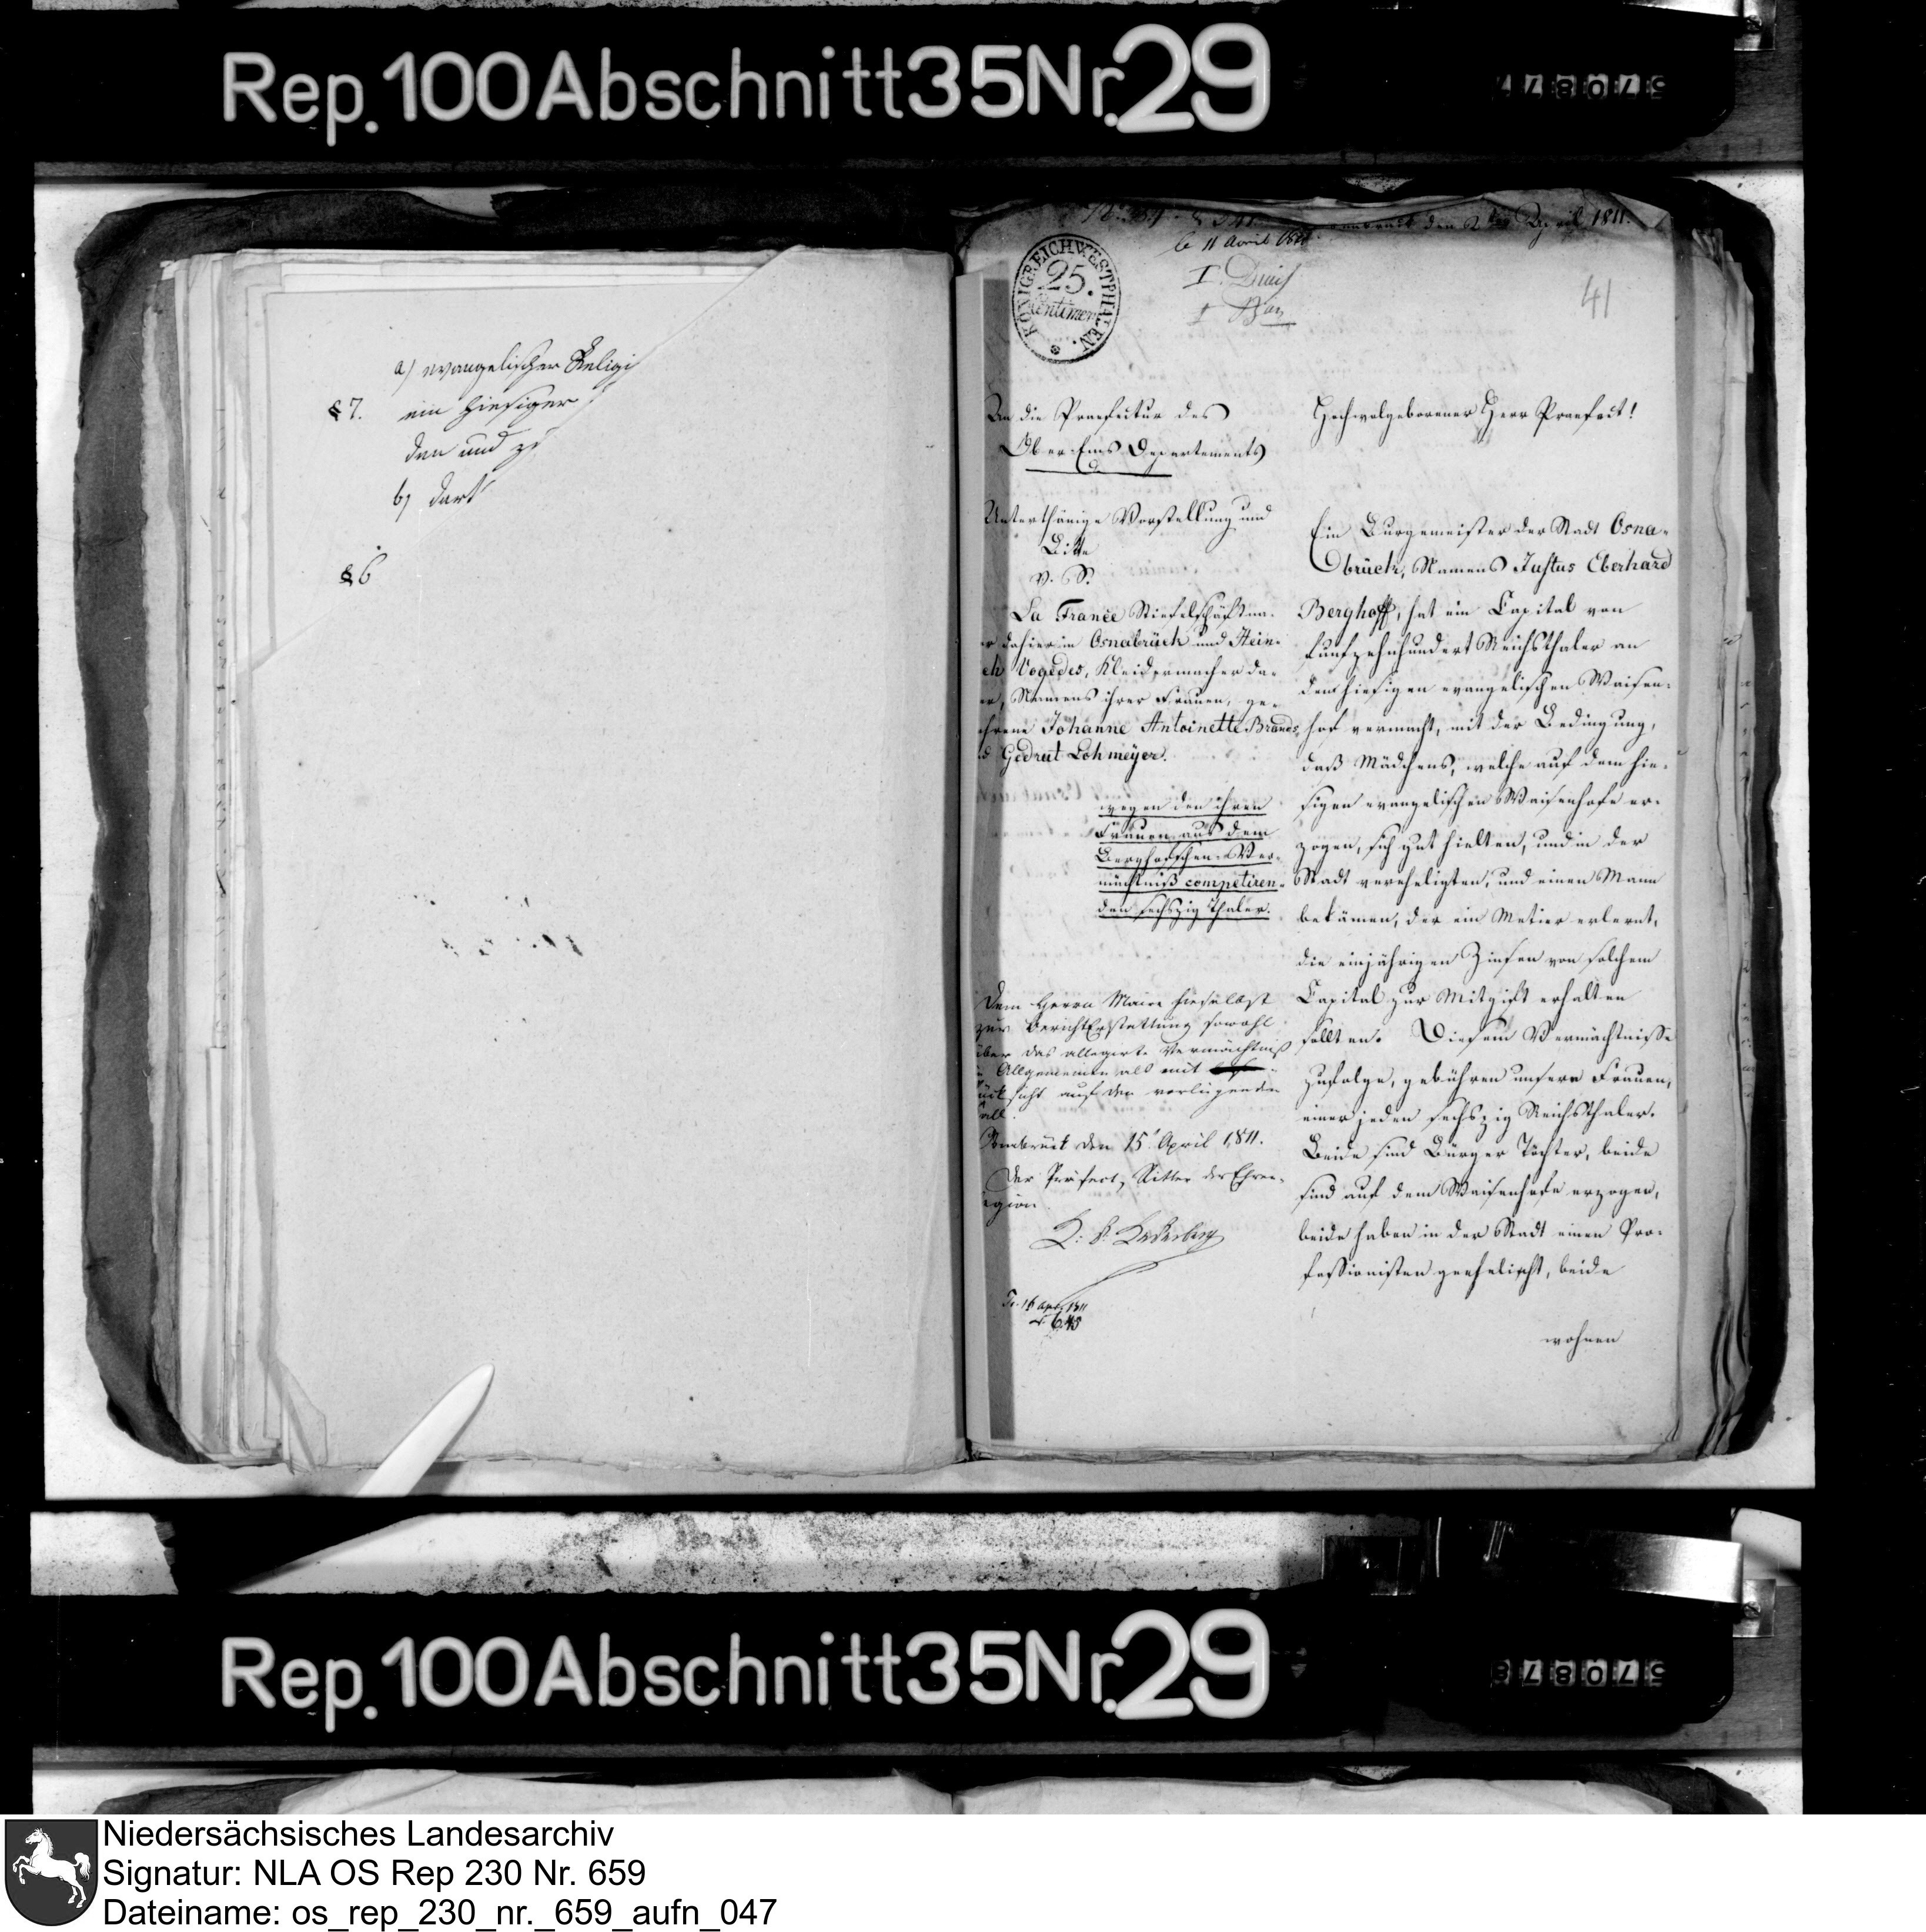 Rep. 100 Abschnitt 35 Nr. 29
a) evangelischer Religi
§ 7. ein hiesiger
den und zu
b) dart
§ 6
Osnabrück den April 1811.
le 11 avril
KÖNIGREICH WESTPHALEN.
25.
Centimen
41
An die Praefectur des
Ober-Ems-Departements
Unterthänige Vorstellung und
Bitte
v. S.
La France Stiefelschäftma-
dahier in Osnabrück und Hein-
Vogedes, Kleidermacher da-
Namens ihrer Frauen, ge-
Johanne Antoinette Brands
Gedrut Lohmeyer.
wegen den ihren
Frauen aus dem
Berghoffschen Ver-
mächtniß competiren-
den sechszig Thaler.
Dem Herrn Maire hieselbst
zur BerichtErstattung sowohl
über das allegirte Vermächtniß
Allgemeinen als mit
sicht auf den vorliegenden
Fall.
Osnabrück den 15. April 1811.
Der Präfect, Ritter der Ehren-
legion
Hochwolgeborener Herr Praefect!
Ein Burgemeister der Stadt Osna-
brück, Namens Justus Eberhard
Berghoff, hat ein Capital von
funfzehnhundert Reichsthaler an
dem hiesigen evangelischen Waisen-
hof vermacht, mit der Bedingung,
daß Mädchens, welche auf dem hie-
sigen evangelischen Waisenhofe er-
zogen, sich gut hielten, und in der
Stadt vereheligten, und einen Mann
bekämen, der ein Metier erlernt,
die einjährigen Zinsen von solchem
Capital zur Mitgift erhalten
sollten. Diesem Vermächtnisse
zufolge, gebühren unsern Frauen,
einer jeden sechszig Reichsthaler.
Beide sind Bürger Töchter, beide
sind auf dem Waisenhofe erzogen,
beide haben in der Stadt einen Pro-
fessionisten geehelicht, beide
wohnen
Rep. 100 Abschnitt 35 Nr. 29
Niedersächsisches Landesarchiv
Signatur: NLA OS Rep 230 Nr. 659
Dateiname: os_rep_230_nr._659_aufn_047